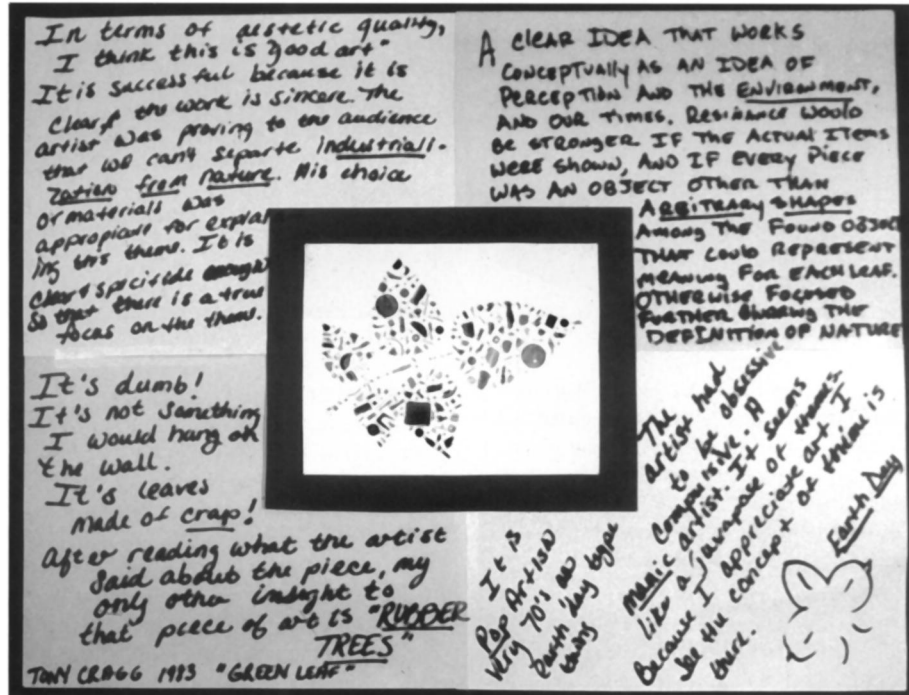 In terms of aestetic quality,
I think this is "good art"
It is successful because it is
clear, & the work is sincere. The
artist was proving to the audience
that we can't separte industriali-
zation from nature. His choice
of materials was
appropiate for explain-
ing this theme. It is
clear & specific enough
so that there is a true
focus on the theme.
A CLEAR IDEA THAT WORKS
CONCEPTUALLY AS AN IDEA OF
PERCEPTION AND THE ENVIRONMENT,
AND OUR TIMES. RESINANCE WOULD
BE STRONGER IF THE ACTUAL ITEMS
WERE SHOWN, AND IF EVERY PIECE
WAS AN OBJECT OTHER THAN
ARBITRARY SHAPES
AMONG THE FOUND OBJECT
THAT COULD REPRESENT
MEANING FOR EACH LEAF.
OTHERWISE FOCUSED
FURTHER BLURRING THE
DEFINITION OF NATURE
It's dumb!
It's not something
I would hang on
the wall.
It's leaves
made of crap!
After reading what the artist
said about the piece, my
only other insight to
that piece of art is "RUBBER
TREES"
TONY CRAGG 1983 "GREEN LEAF"
The
artist had
to be obsessive
compulsive. A
manic artist. It seems
like a of themes.
Because I appreciate art I
see the concept of theme is
there.
It is
Pop Artish
Very 70's an
Earth day type
thing
Earth Day